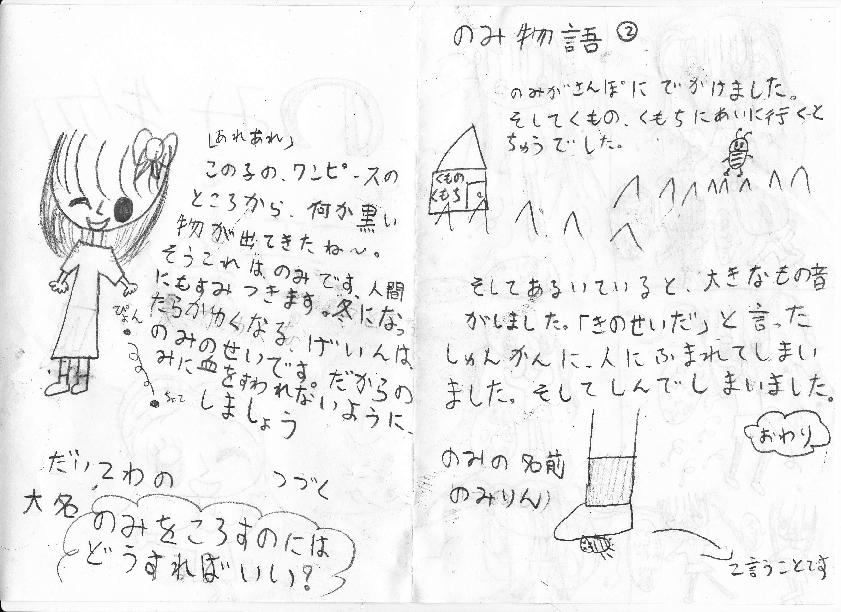 (あれあれ)
この子の、ワンピースの
ところから、何か黒い
物が出てきたね〜。
そうこれはのみです、人間
にもすみつきます。冬になっ
たらかゆくなる、げいんは、
のみのせいです。だからの
みに血をすわれないように、
しましょう
ぴょん
つづく
だい2わの
大名
のみをころすのには
どうすればいい?
のみ物語②
のみがさんぽにでかけました。
そしてくもの、くもちにあいに行くと
ちゅうでした。
くもの
くもち
そしてあるいていると、大きなもの音
がしました。「きのせいだ」と言った
しゅんかんに、人にふまれてしまい
ました。そしてしんでしまいました。
おわり
のみの名前
のみりん)
と言うことです